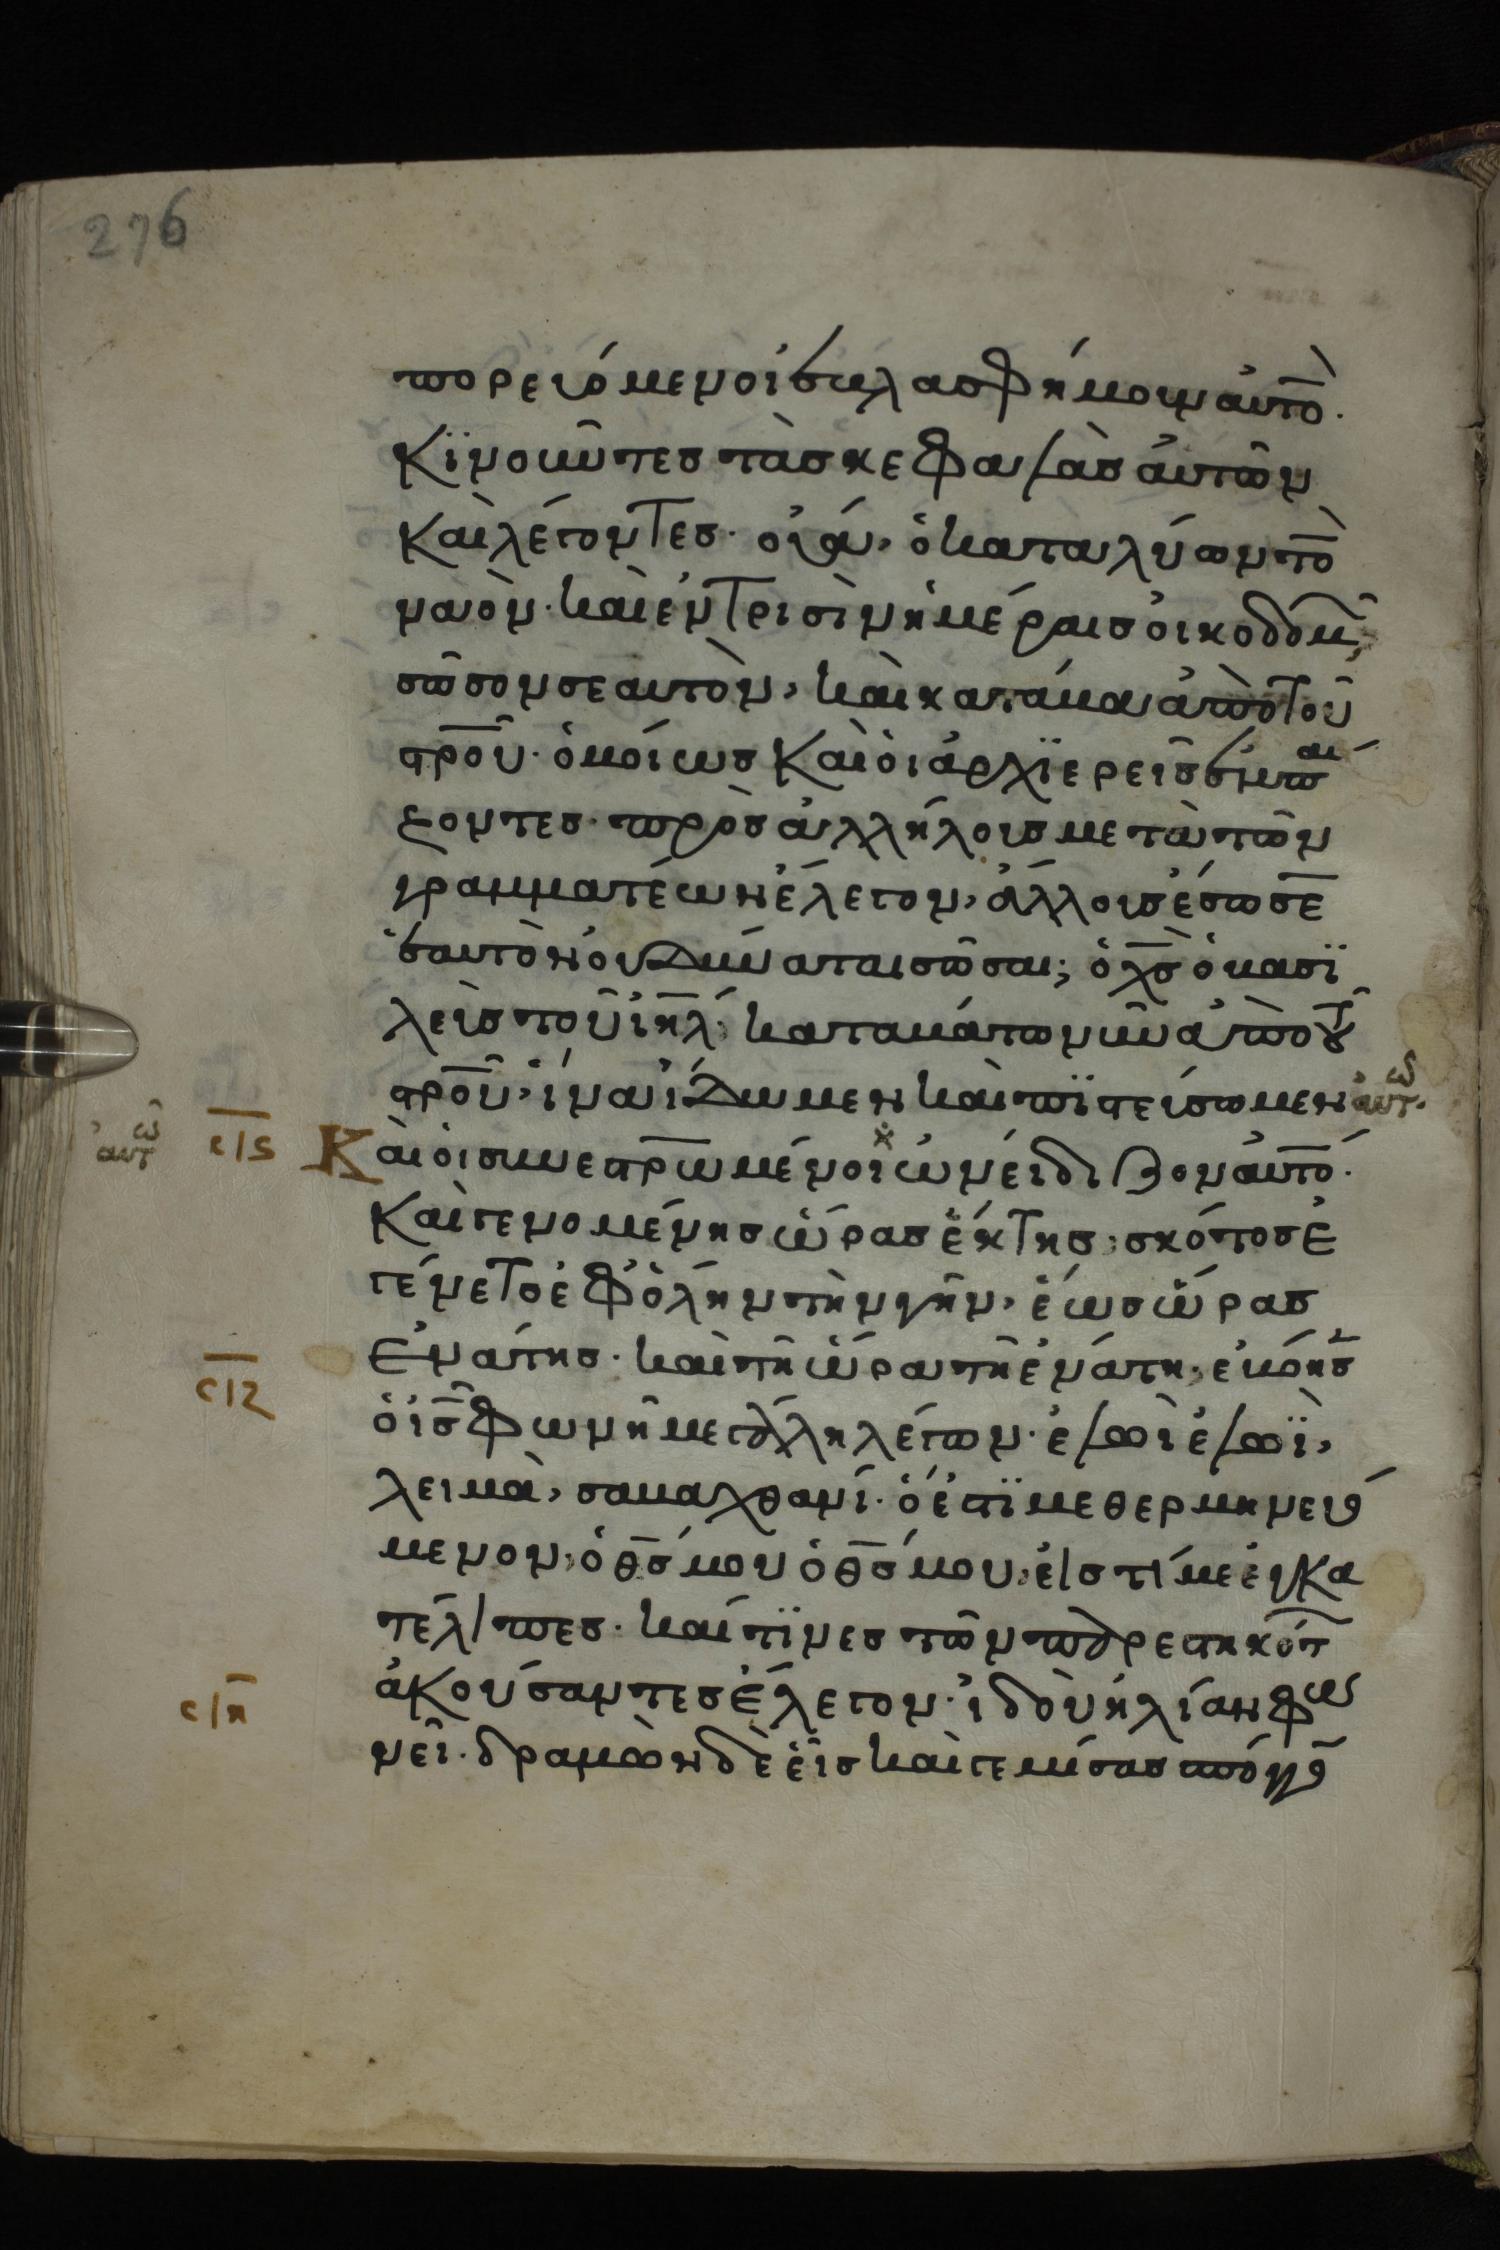 276
πορευόμενοι ἐβλασφήμουν αὐτὸ̅.
Κϊνοῦντες τὰς κεφαλὰς αὐτῶν
Καὶ λέγοντες· οὐά, ὁ καταλύων τὸ̅
ναὸν· καὶ ἐν τρισὶν ἡμέραις οἰκοδομ̑,
σῶσον σεαυτὸν, καὶ κατάβα ἀπὸ τοῦ
σ̅ρ̅ο̅ῦ· ὁμοίως Καὶ οἱ ἀρχϊερεῖς ἐμπαί
ζοντες· πρὸς ἀλλήλους μετὰ τῶν
γραμματέων ἔλεγον, ἄλλους ἔσωσε̅
ἑαυτὸν οὐ δύναται σῶσαι; ὁ χ̅ς̅ ὁ βασϊ
λεὺς τοῦ ἰ̅η̅λ̅, καταβάτω νῦν ἀπὸ τοῦ
σ̅ρ̅ο̅ῦ, ἵνα ἴδωμεν καὶ πϊστεύσωμεν αὐτῶ.
αὐτῶ σ̅ι̅ς̅ Καὶ οἱ συνεσ̅ρ̅ωμένοι ὠνείδιζον αὐτὸ̅.
Καὶ γενομένης ὥρας ἕκτης, σκότος ἐ
γένετο ἐφ ὅλην τὴν γῆν, ἕως ὥρας
Ἐνάτης· καὶ τῆ ὥρα τῆ ἐνάτη, ἐβόησ̅
σ̅ι̅ζ̅
ὁ ἰ̅ς̅ φωνῆ μεγάλη λέγων· ἐλωῒ ἐλωῒ,
λειμὰ, σαβαχθανί· ὅ ἐστϊ μεθερμηνευό
μενον, ὁ θ̅ς̅ μου ὁ θ̅ς̅ μου, εἰς τί με ἐγκα
τέλιπες· καί τϊνες τῶν παρεστηκότ̅
σ̅ι̅η̅ ἀκούσαντες ἔλεγον· ἰδοὺ ἠλίαν φω
νεῖ· δραμὼν δὲ εἷς καὶ γεμίσας σπόγγο̅